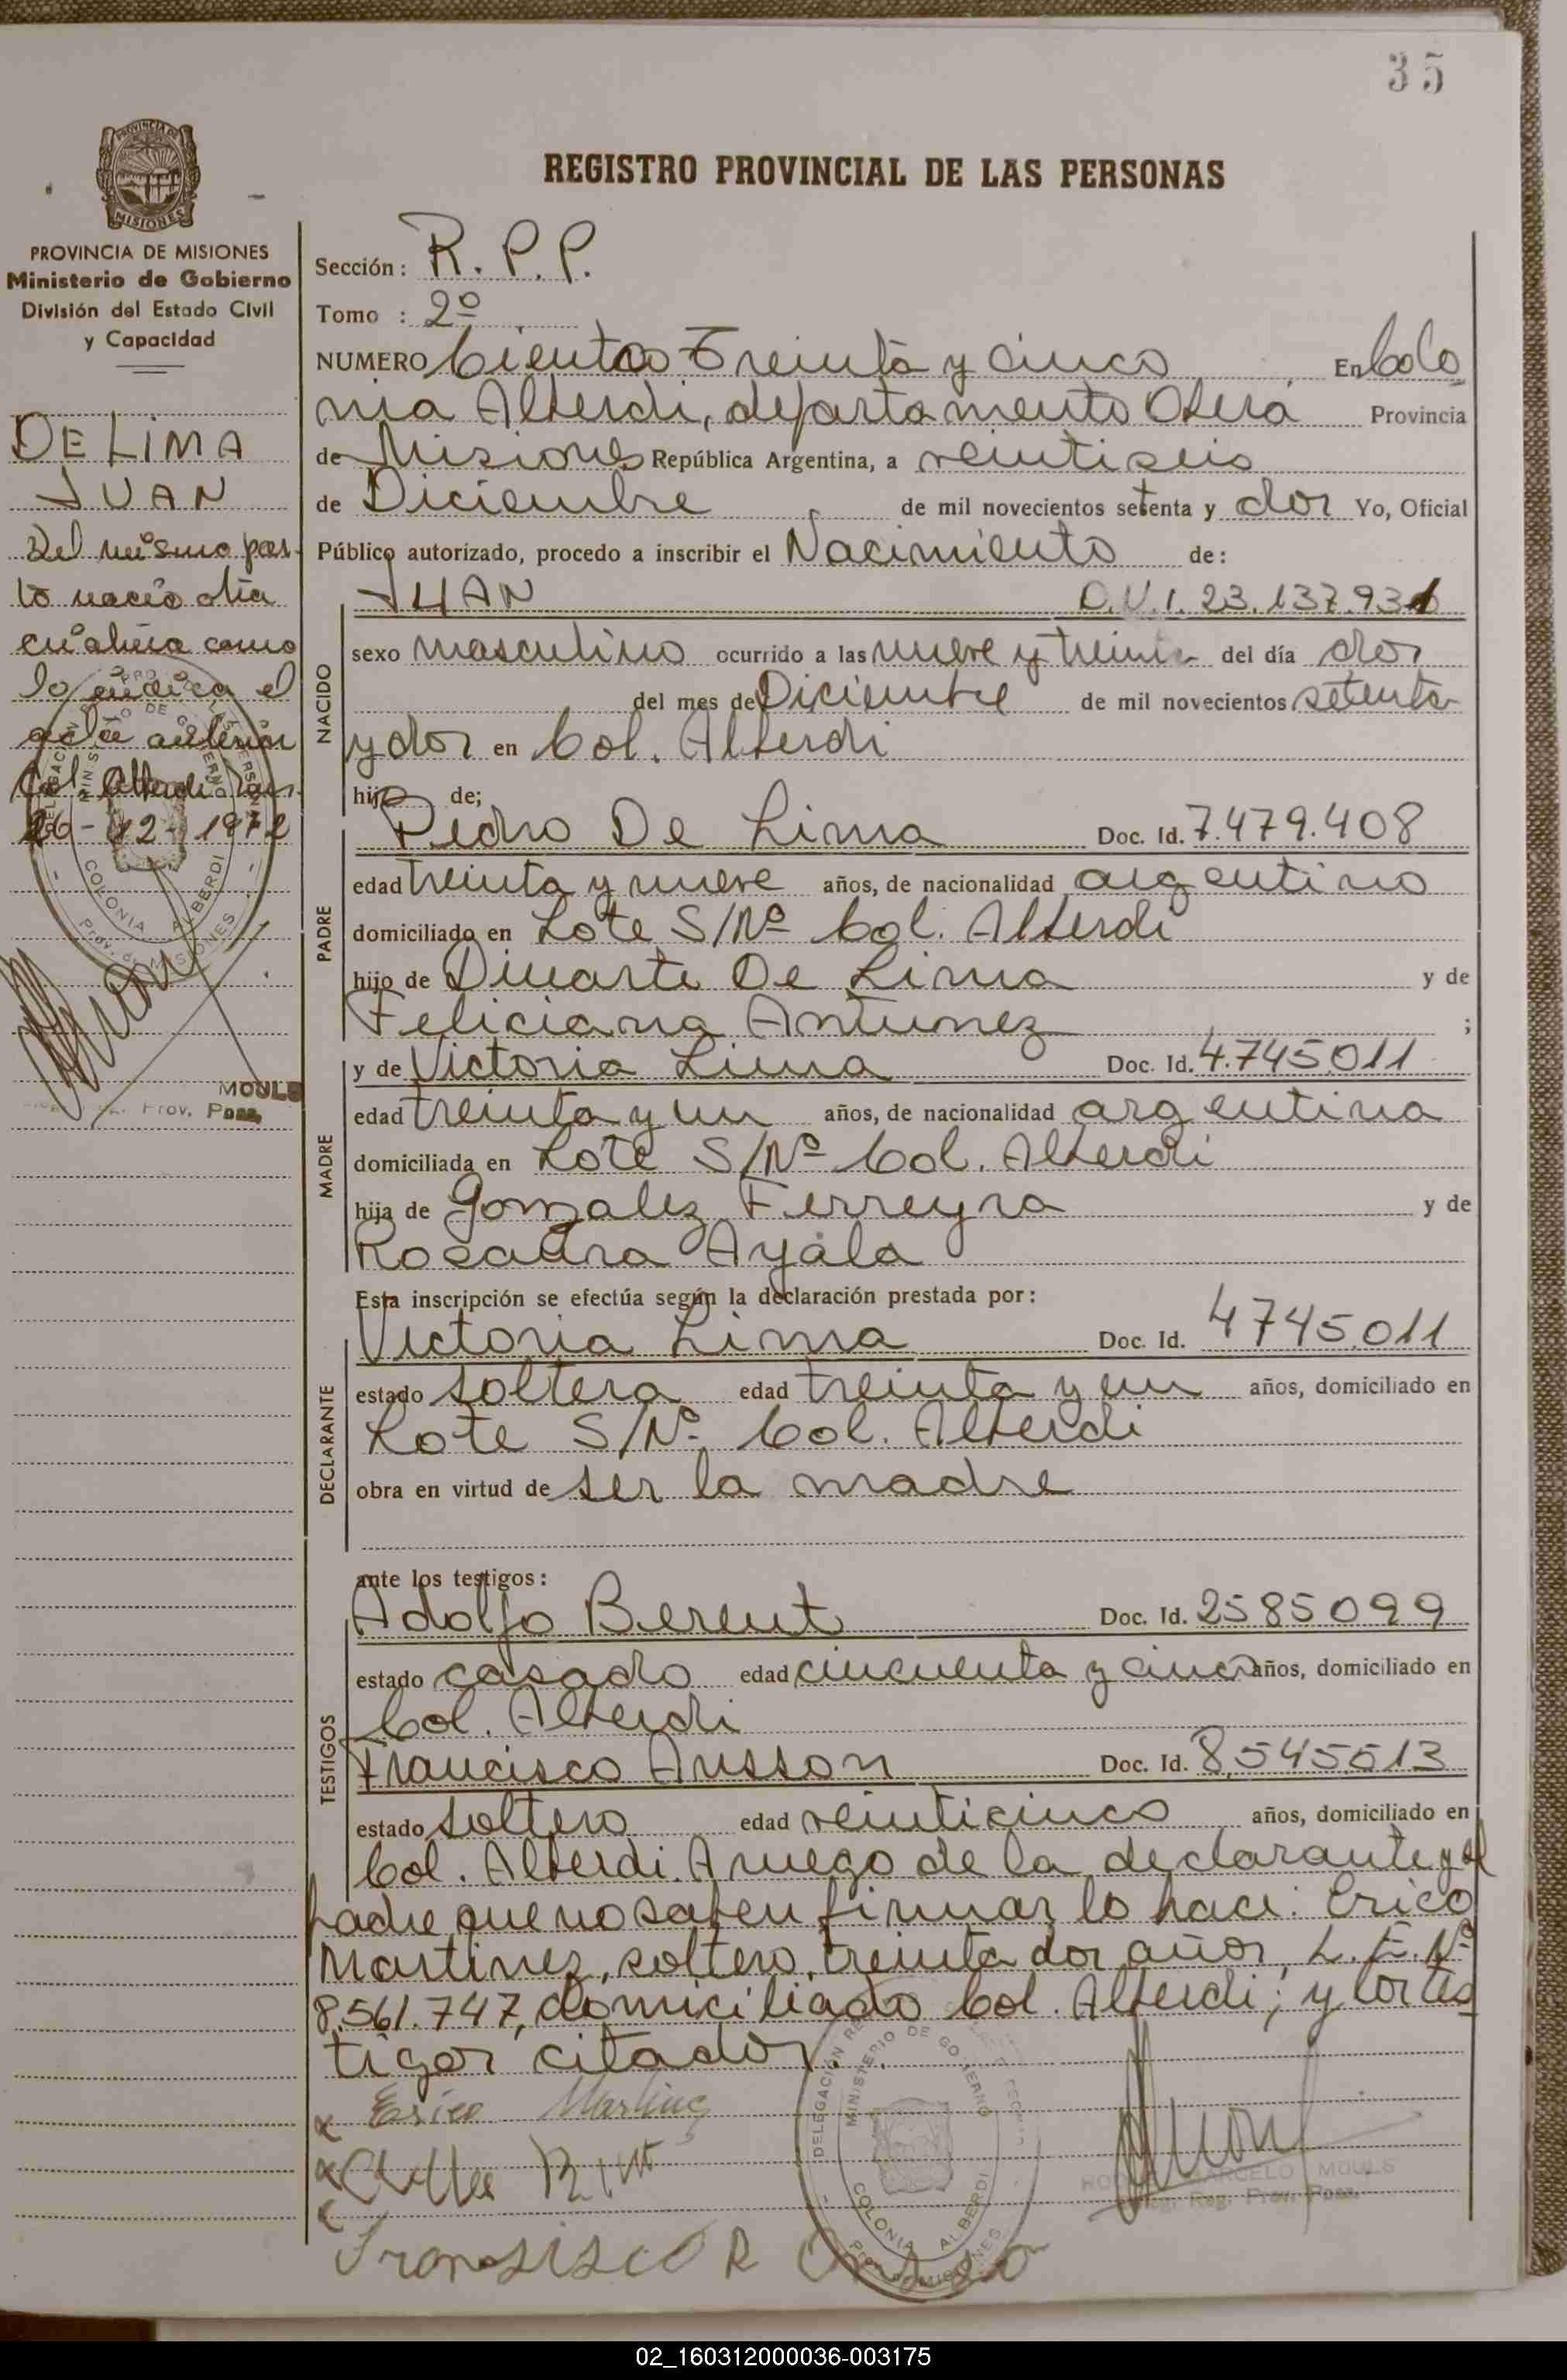 35
REGISTRO PROVINCIAL DE LAS PERSONAS
PROVINCIA DE MISIONES
Ministerio de Gobierno
División del Estado Civil
y Capacidad
DE LIMA
JUAN
Del mismo par-
to nació otra
criatura como
lo indica el
acta anterior
Col. Alberdi
26-12-1972
MOULS
Prov. Pers.
Sección: R.P.P.
Tomo : 2º
NUMERO Ciento Treinta y cinco En Colo
nia Alberdi, departamento Oberá Provincia
de Misiones República Argentina, a veintiseis
de Diciembre de mil novecientos setenta y dos Yo, Oficial
Público autorizado, procedo a inscribir el Nacimiento de:
JUAN D.N.I. 23.137.931
NACIDO
sexo masculino ocurrido a las nueve y treinta del día dos
del mes de Diciembre de mil novecientos setenta
y dos en Col. Alberdi
hijo de;
PADRE
Pedro De Lima Doc. Id. 7.479.408
edad treinta y nueve años, de nacionalidad argentino
domiciliado en Lote S/Nº Col. Alberdi
hijo de Duarte De Lima y de
Feliciana Antunez ;
MADRE
y de Victoria Lima Doc. Id. 4.745.011
edad treinta y un años, de nacionalidad argentina
domiciliada en Lote S/Nº Col. Alberdi
hija de Gonzalez Ferreyra y de
Rosaura Ayala
Esta inscripción se efectúa según la declaración prestada por:
DECLARANTE
Victoria Lima Doc. Id. 4745.011
estado soltera edad treinta y un años, domiciliado en
Lote S/Nº Col. Alberdi
obra en virtud de ser la madre
ante los testigos:
TESTIGOS
Adolfo Berent Doc. Id. 2585099
estado casado edad cincuenta y cinco años, domiciliado en
Col. Alberdi
Francisco Ansson Doc. Id. 8.545.513
estado soltero edad veinticinco años, domiciliado en
Col. Alberdi. A ruego de la declarante y el
padre que no saben firmar lo hace: Erico
Martinez, soltero, treinta dos años, L.E. Nº
8.561.747, domiciliado Col. Alberdi; y los tes
tigos citados.
Erico Martinez
DELEGACIÓN
MINISTERIO DE GOBIERNO
COLONIA ALBERDI
Prov. de MISIONES
MARCELO MOULS
Reg. Prov. Pers.
Fransisco R
02_160312000036-003175